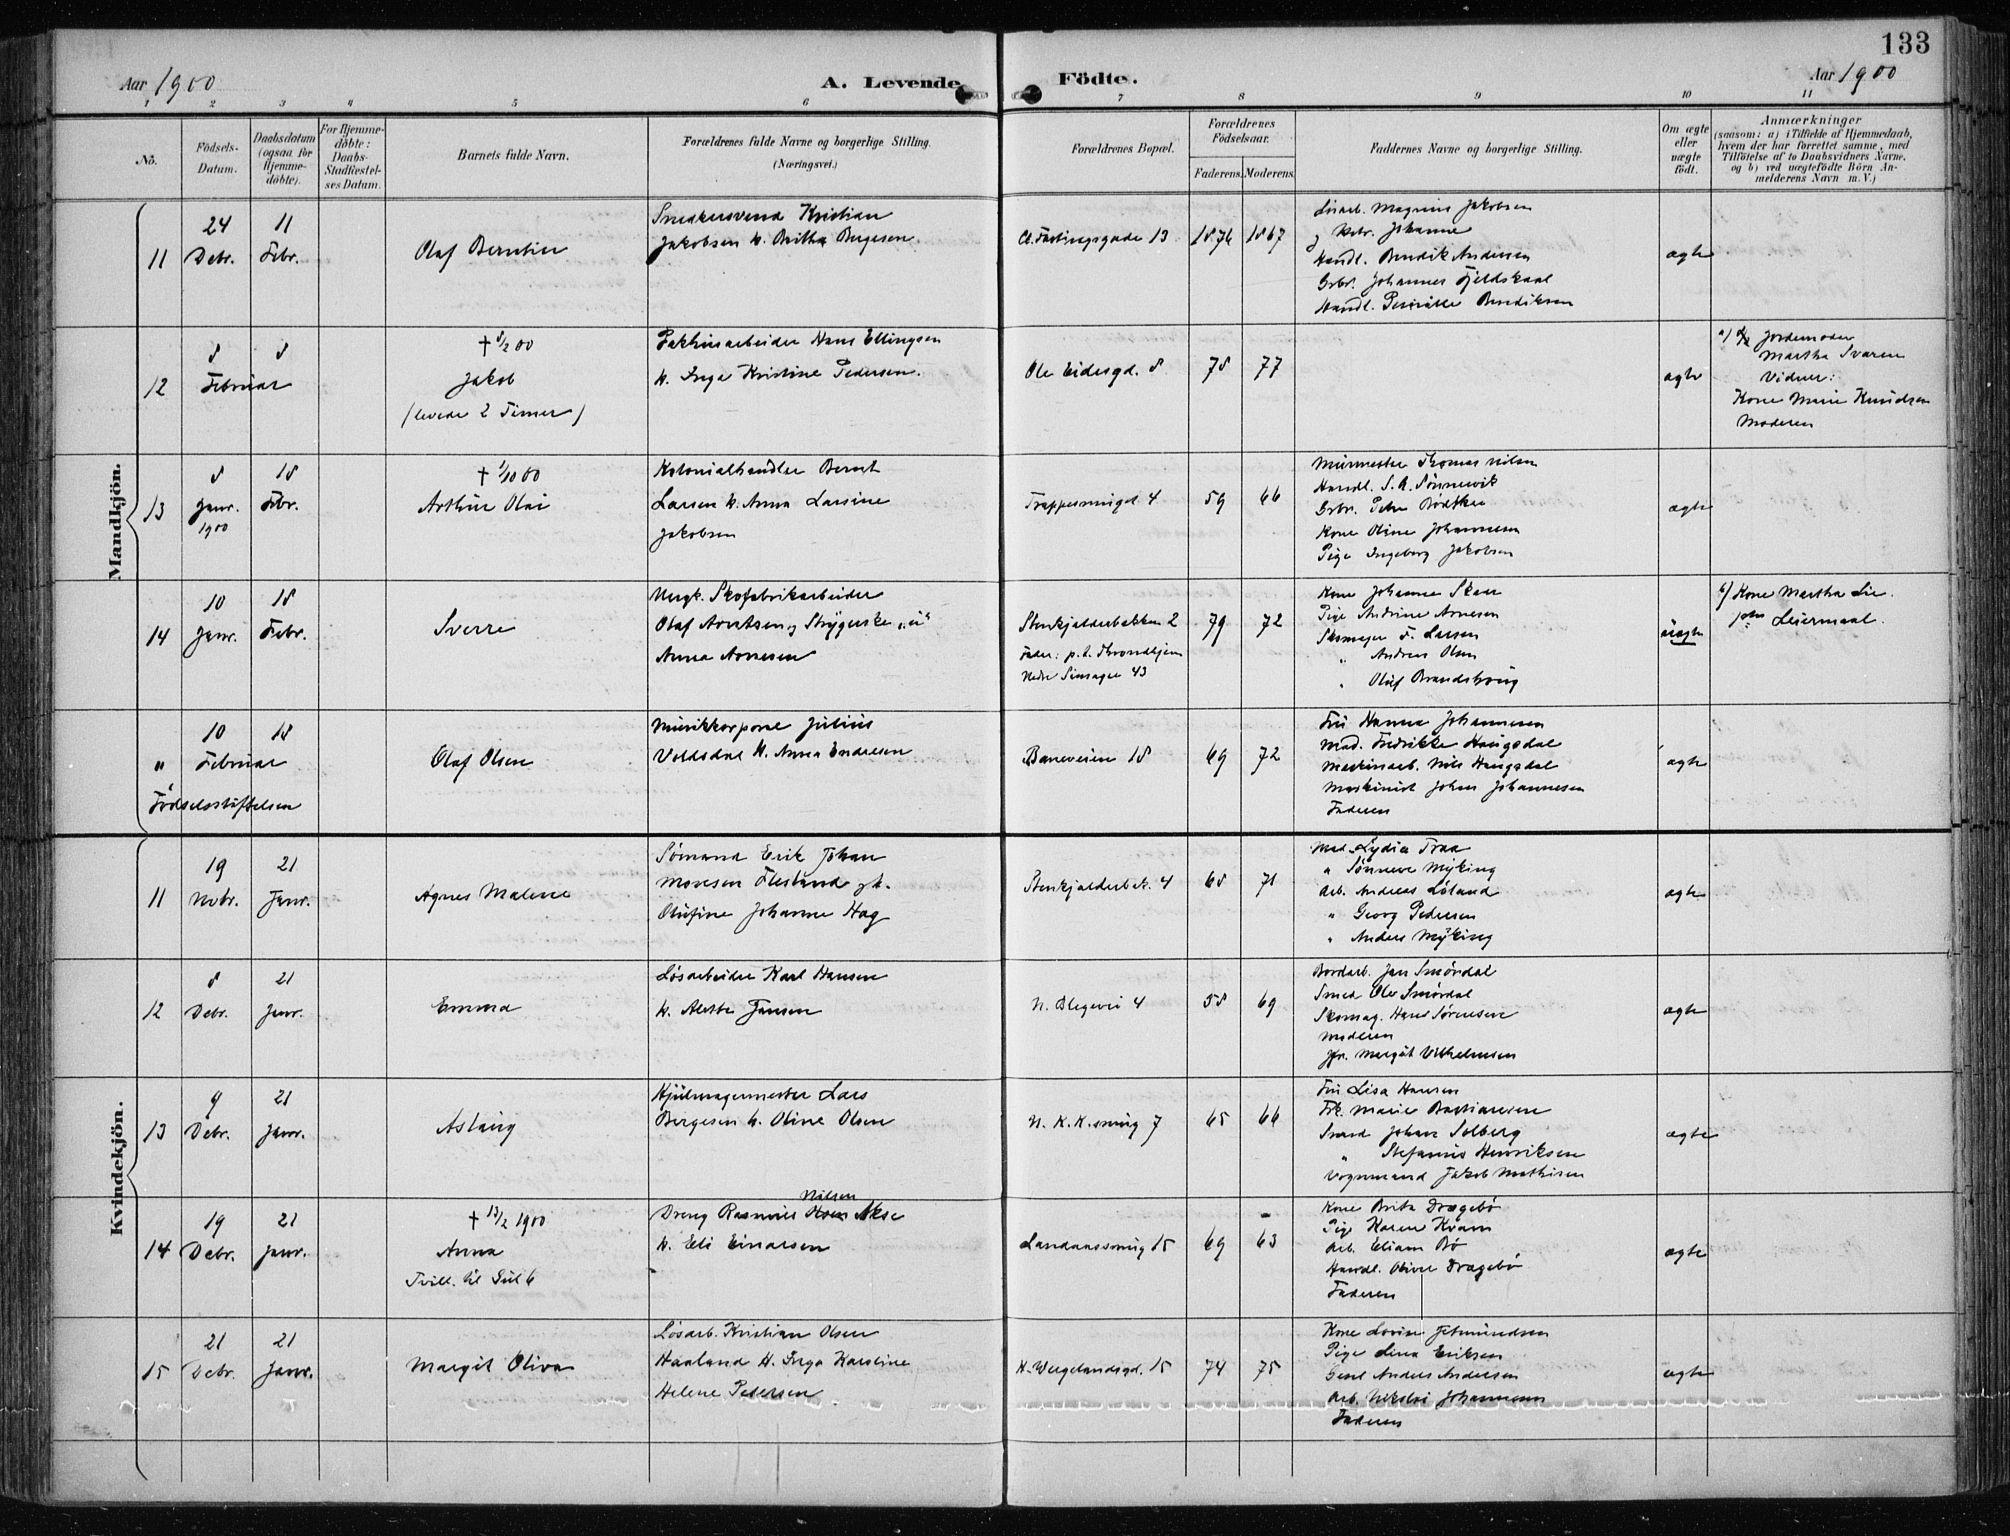 133
Aar 1900
A. Levende Födte.
Aar 1900
1 2 3 4 5 6 7 8 9 10 11
No.
Födsels-Datum.
Daabsdatum (ogsaa for Hjemme-døbte).
For Hjemme-døbte: Daabs-Stadfæstelses Datum.
Barnets fulde Navn.
Forældrenes fulde Navne og borgerlige Stilling. (Næringsvei.)
Forældrenes Bopæl.
Forældrenes Födselsaar.
Faderens. Moderens.
Faddernes Navne og borgerlige Stilling.
Om ægte eller uægte födt.
Anmærkninger
(saasom: a) i Tilfælde af Hjemmedaab,
hvem der har forrettet samme, med
Tilföielse af to Daabsvidners Navne,
og b) ved uægtefödte Börn An-
melderens Navn m. V.)
Mandkjön.
11
24 Debr.
11 Febr.
Olaf Berntin
Snedkersvend Kristian
Jakobsen h. Britha Bergesen
Cl. Fastingsgade 13
1876 1867
Løsarb. Magnus Jakobsen
Johanne
Handl. Bendik Andersen
Grbr. Johannes Fjeldskaal
Handl. Bendiksen
ægte
12
8 8
Februar
† 8/2 00
Jakob
(levede 2 Timer)
Pakhusarbeider Hans Ellingsen
h. Inga Kristine Pedersen.
Ole Eidesgd. 8
78 77
ægte
a) Jordemoder
Martha Svaren
Vidner:
Kone Marie Knudsen
Moderen
13
8 Janr. 1900
18 Febr.
† 1/10 00
Arthur Olai
Kolonialhandler Bernt
Larsen h. Anna Larsine
Jakobsen
Trappesmuget 4
59 66
Murmester Thomas Nilsen
Handl. S. A. Sønnevik
Grbr. Peter Bødtker
Kone Oline Johannesen
Pige Ingeborg Jakobsen
ægte
14
10 Janr.
18 Febr.
Sverre
Ungk. Skofabrikarbeider
Olaf Arntsen og Strygerske "u"
Anna Arnesen
Stenkjelderbakken 2
Fader: p. t. Trondhjem
Nedre 43
79 72
Kone Johanne Skaar
Pige Andrine Arnesen
Skomager F. Larsen
" Andreas Olsen
" Oluf
uægte
b) Kone Martha Lie.
Leiermaal.
"
10 18
Februar
Fødselsstiftelsen
Olaf Olsen
Musikkorporal Julius
Voldsdal h. Anna Endresen
Baneveien 18
69 72
Fru Hanna Johannesen
Mad. Fredrikke Haugsdal
Maskinarb. Nils Haugsdal
Maskinist Johan Johannesen
Faderen
ægte
Kvindekjön.
11
19 Nobr.
21 Janr.
Agnes Malene
Sømand Erik Johan
Monsen Flesland h.
Olufine Johanne Hag
Stenkjelderbak. 4
68 71
Mad. Lydia Traa
" Sønneve Myking
Arb. Andreas Løland
" Georg Pedersen
" Anders Myking
ægte
12
8 Debr.
21 Janr.
Emma
Løsarbeider Karl Hansen
h. Alette Jansen
N. Blegevei 4
58 69
Bordarb. Jan Smørdal
Smed Ole Smørdal
Skomag. Hans Sørensen
Moderen
Margit Vilhelmsen
ægte
13
9 Debr.
21 Janr.
Aslaug
Hjulmagermester Lars
Bergesen h. Oline Olsen
N. K. K. smug 7
65 66
Fru Lisa Hansen
Frk. Marie Bastiansen
Svend Johan Solberg
" Stefanus Henriksen
Vognmand Jakob Mathisen
ægte
14
19 Debr.
21 Janr.
† 13/2 1900
Anna
Tvill. til Gut 6
Dreng Rasmus Nilsen Akse
h. Eli Einarsen
Landaassmug 15
69 63
Kone Brita Dragebø
Pige Karen Kvam
Arb. Eliam Bø
Handl. Oliver Dragebø
Faderen
ægte
15
21 Debr.
21 Janr.
Margit Oliva
Løsarb. Kristian Olsen
Haaland h. Inga Karoline
Helene Pedersen
H. Wergelandsgd. 15
74 75
Kone Lovise
Pige Lina Eriksen
Anders Andersen
Arb. Nikolai Johannesen
Faderen
ægte